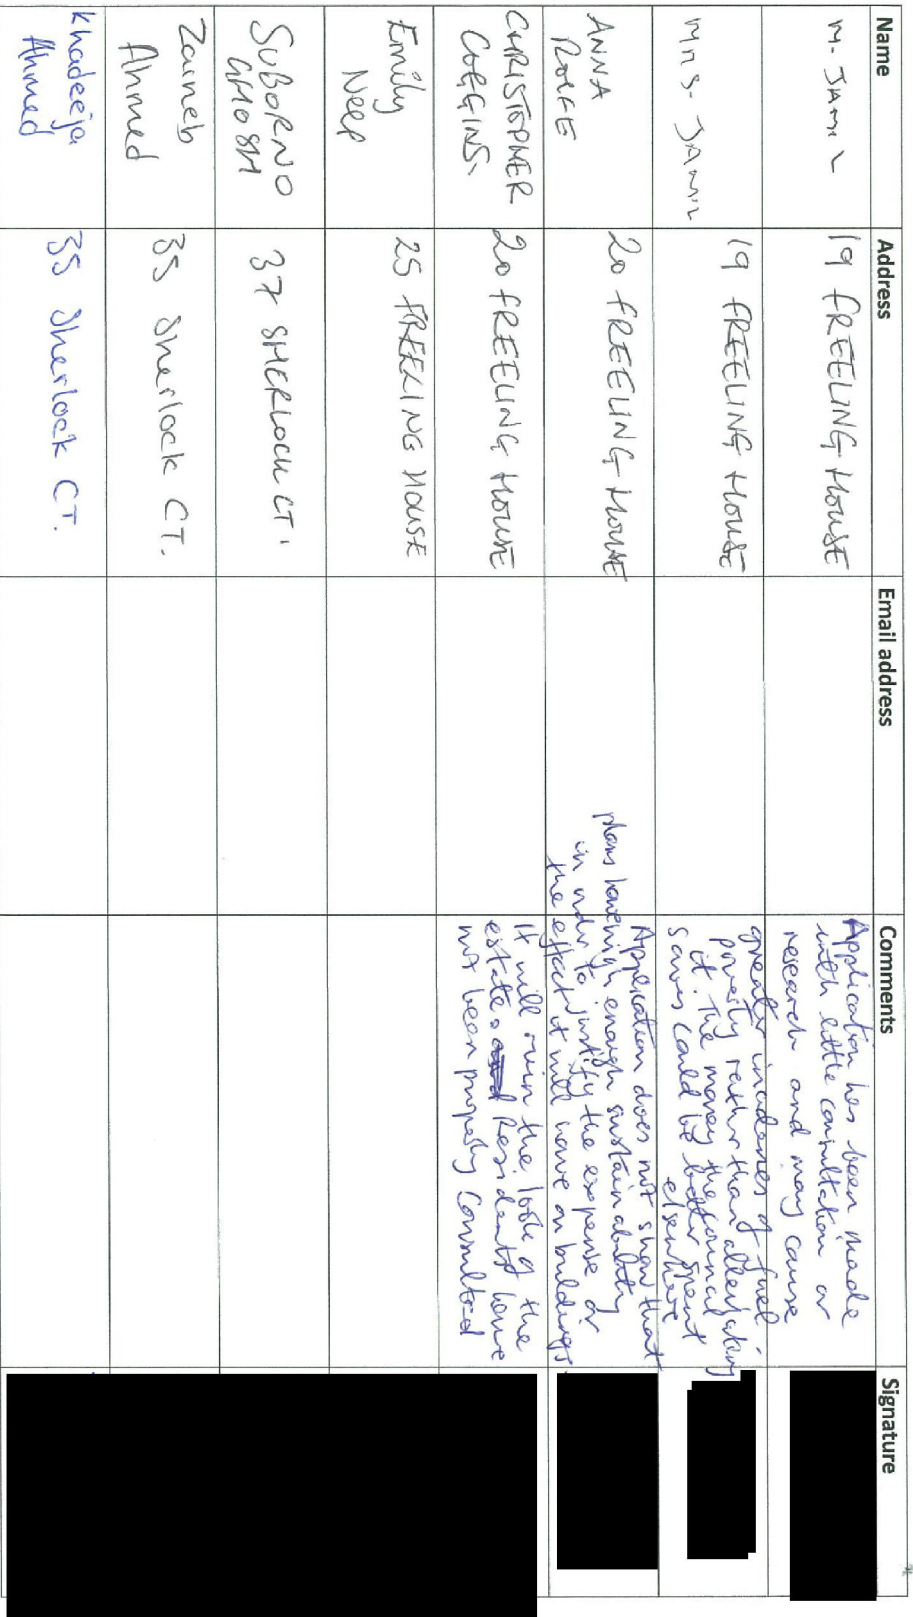 Name Address Email address Comments Signature
M. JAMIL 19 FREELING HOUSE
Application has been made
with little consultation or
research and may cause
MRS. JAMIL 19 FREELING HOUSE
greater incidences of fuel
poverty rather than alleviating
it. The money the council
saves could be better spent
elsewhere
ANNA
ROLFE
20 FREELING HOUSE
Application does not show that
plans have high enough sustainability
in order to justify the expense or
the effect it will have on buildings
CHRISTOPHER
COGGINS.
20 FREELING HOUSE
It will ruin the look of the
estate. Residents have
not been properly consulted
Emily
Neep
25 FREELING HOUSE
SUBORNO
GHOSH
37 SHERLOCK CT.
Zaineb
Ahmed
35 Sherlock CT.
Khadeeja
Ahmed
35 Sherlock CT.